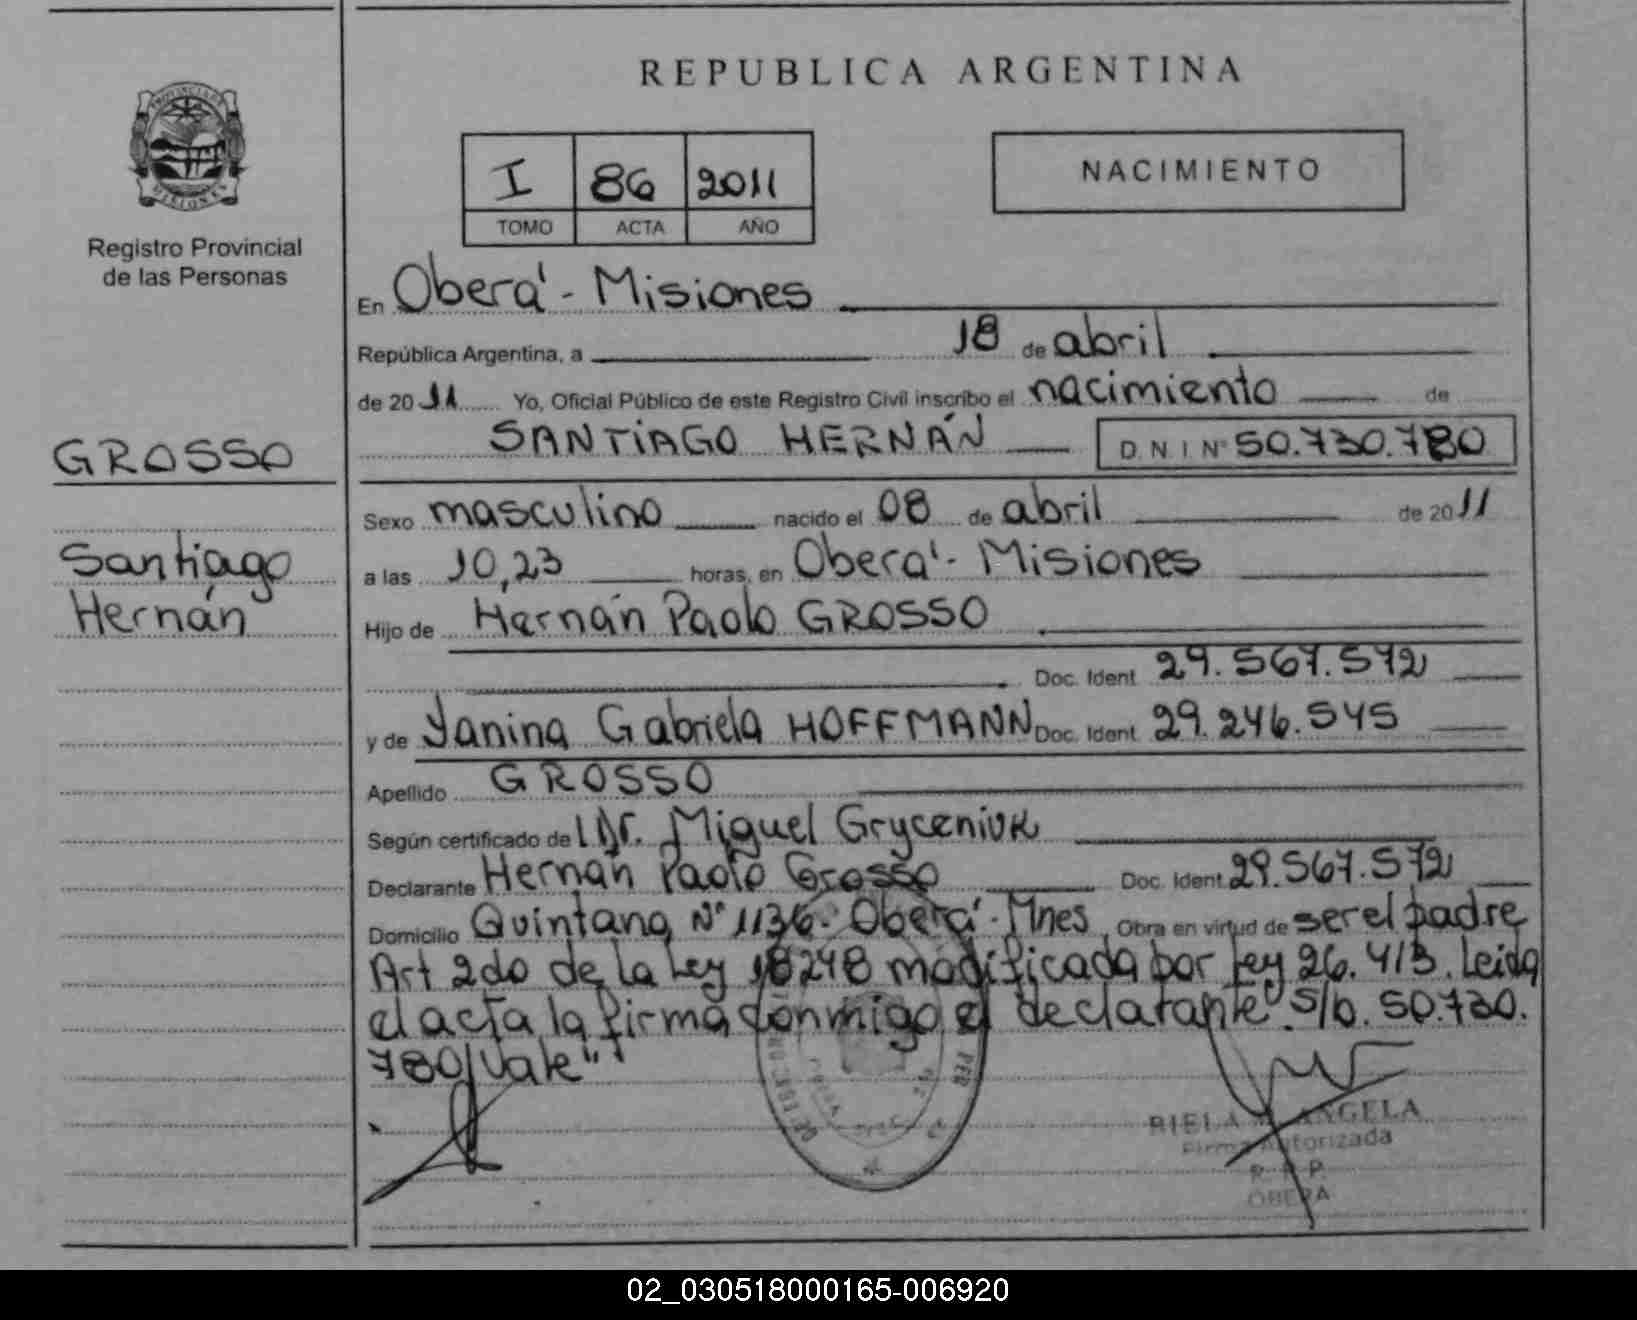 REPUBLICA ARGENTINA
PROVINCIA DE MISIONES
Registro Provincial
de las Personas
I 86 2011
TOMO ACTA AÑO
NACIMIENTO
En Oberá - Misiones
República Argentina, a 18 de abril
de 2011 Yo, Oficial Público de este Registro Civil inscribo el nacimiento de
GROSSO
SANTIAGO HERNÁN D.N.I. Nº 50.730.780
Sexo masculino nacido el 08 de abril de 2011
Santiago
a las 10,23 horas, en Oberá - Misiones
Hernán
Hijo de Hernán Paolo GROSSO
Doc. Ident. 29.567.572
y de Yanina Gabriela HOFFMANN Doc. Ident. 29.246.545
Apellido GROSSO
Según certificado del Dr. Miguel Gryceniuk
Declarante Hernán Paolo Grosso Doc. Ident. 29.567.572
Domicilio Quintana Nº 1136. Oberá - Mnes Obra en virtud de ser el padre
Art 2do de la Ley 18248 modificada por Ley 26.413. Leida
el acta la firma conmigo el declarante. S/b. 50.730.
780/Vale"
RIELA M ANGELA
Firma Autorizada
R. P. P.
OBERA
02_030518000165-006920